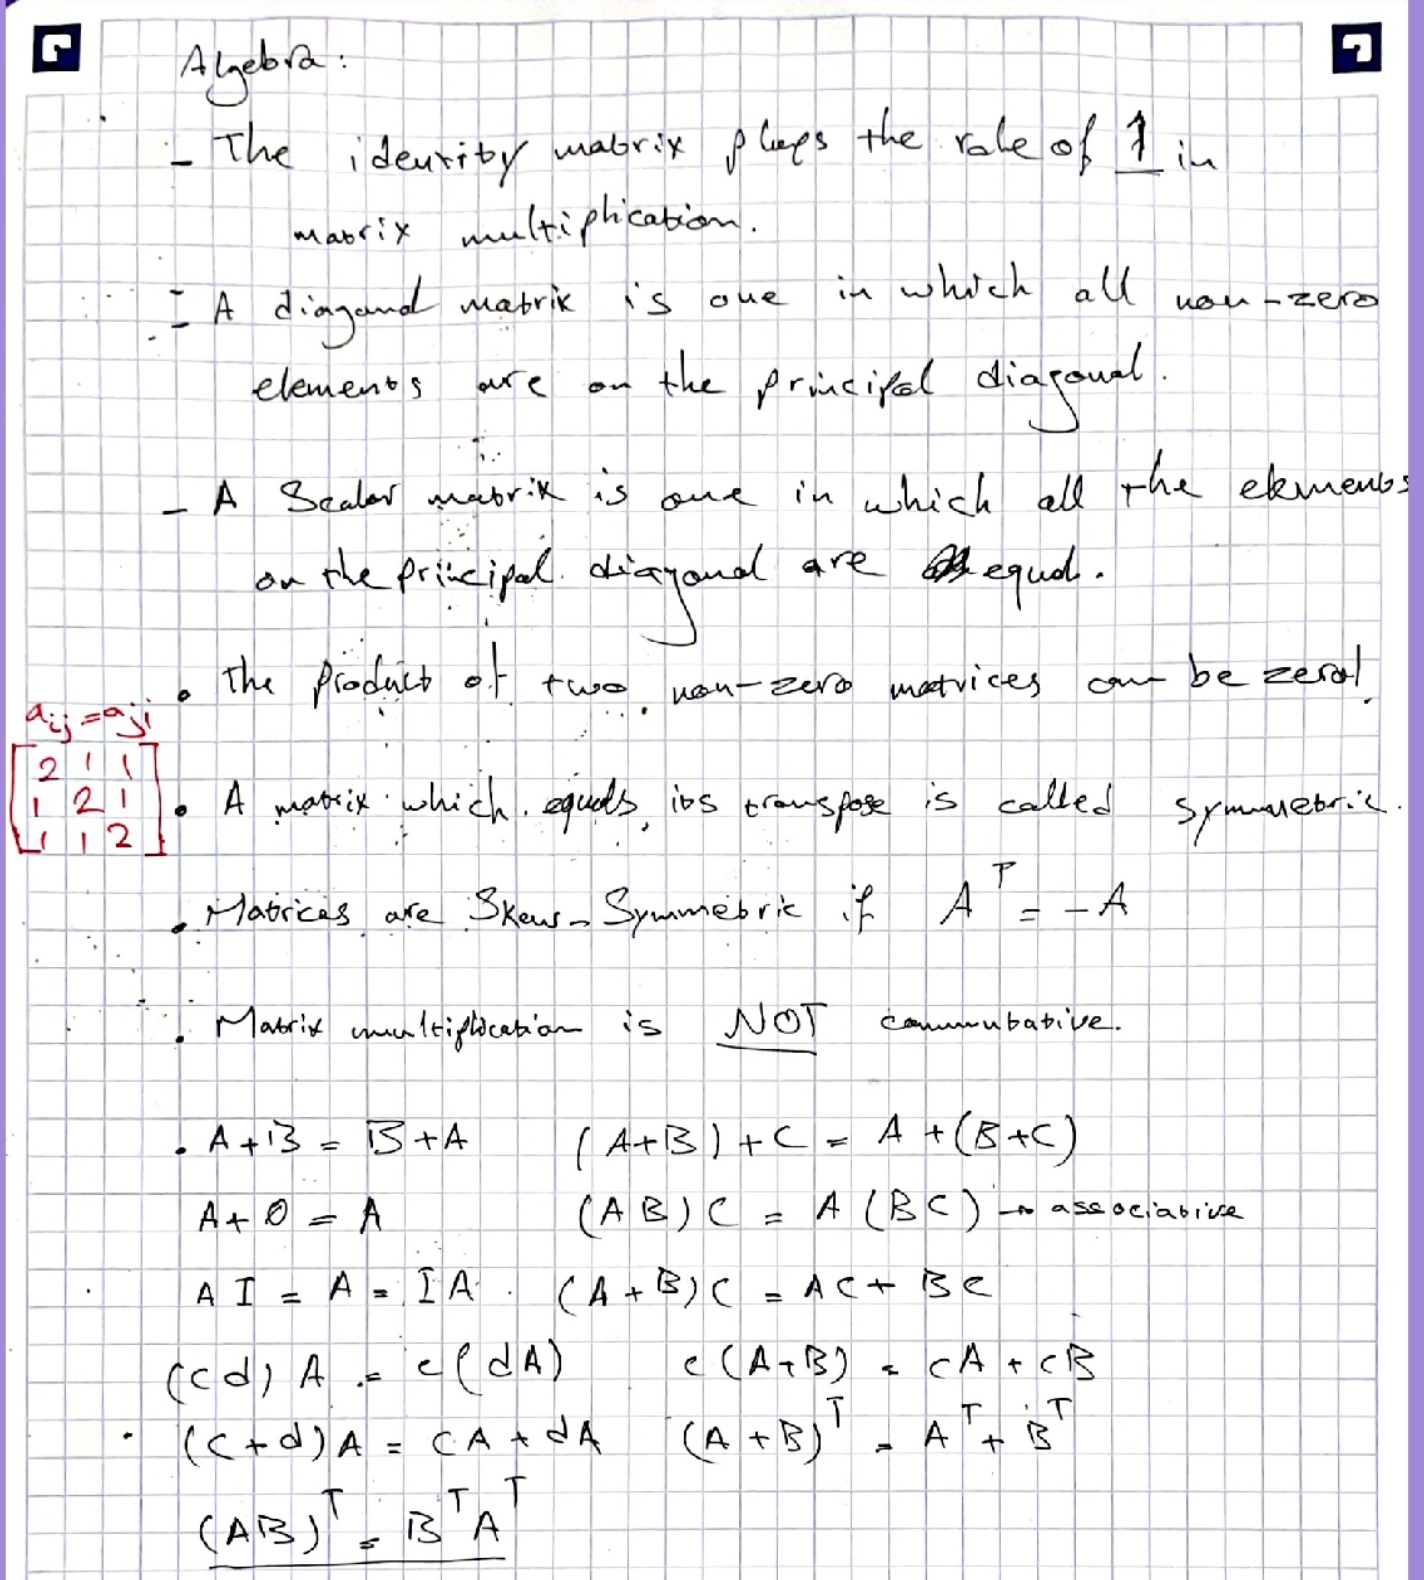 Algebra:
- The identity matrix plays the role of 1 in
matrix multiplication.
- A diagonal matrix is one in which all non-zero
elements are on the principal diagonal.
- A Scalar matrix is one in which all the elements
on the principal diagonal are equal.
• The product of two non-zero matrices can be zero!
aij = aji
[2 1 1
1 2 1
1 1 2]
• A matrix which equals its transpose is called symmetric.
• Matrices are Skew-Symmetric if Aᵀ = -A
• Matrix multiplication is NOT commutative.
• A+B = B+A (A+B)+C = A+(B+C)
A+0 = A (AB)C = A(BC) → associative
AI = A = IA (A+B)C = AC + BC
(cd)A = c(dA) c(A+B) = cA + cB
(c+d)A = cA + dA (A+B)ᵀ = Aᵀ + Bᵀ
(AB)ᵀ = BᵀAᵀ